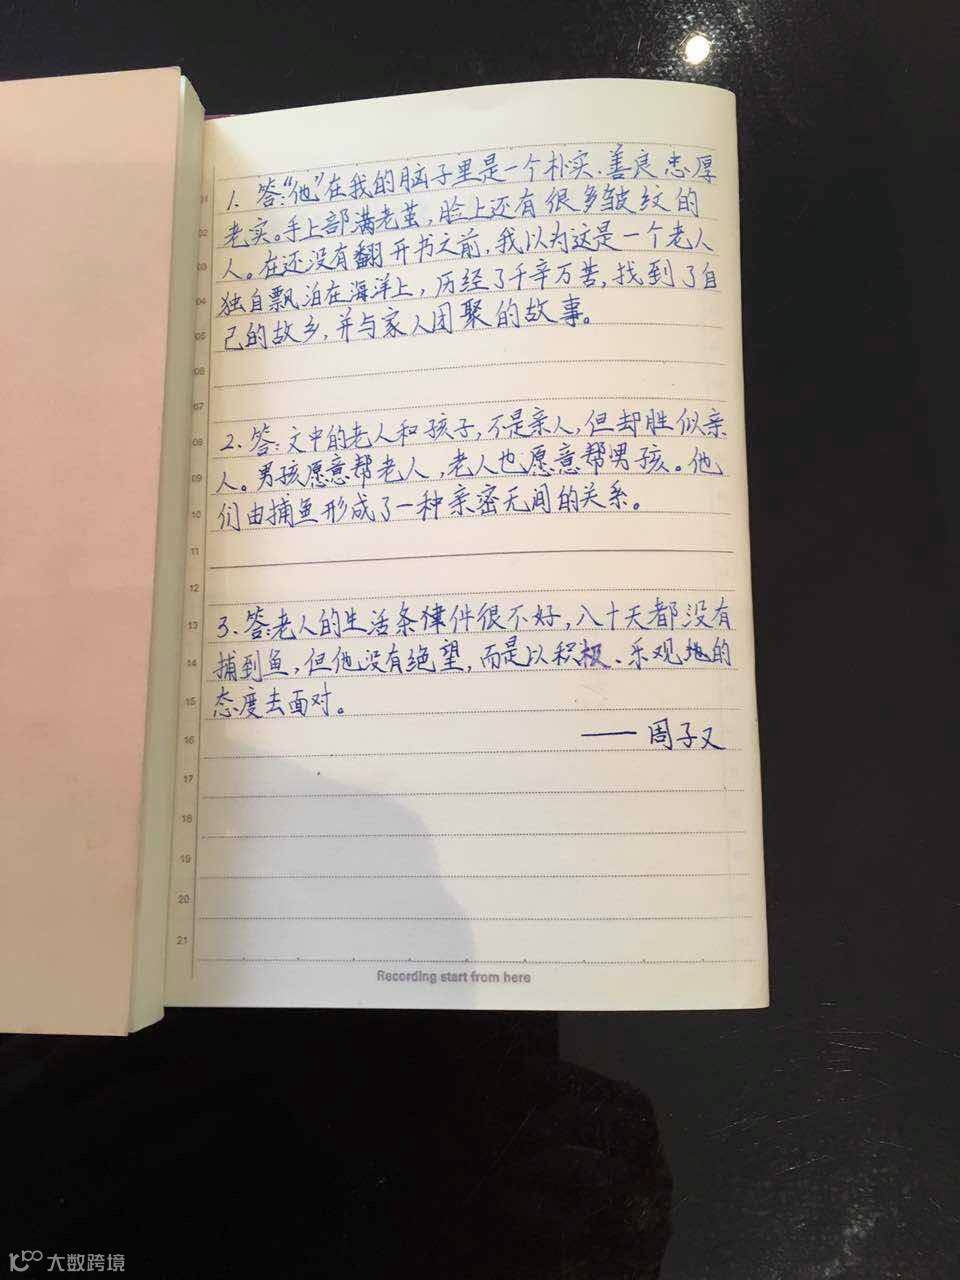 1. 答:“他”在我的脑子里是一个朴实、善良、忠厚
老实。手上部满老茧,脸上还有很多皱纹的
人。在还没有翻开书之前,我以为这是一个老人
独自飘泊在海洋上,历经了千辛万苦,找到了自
己的故乡,并与家人团聚的故事。
2. 答:文中的老人和孩子,不是亲人,但却胜似亲
人。男孩愿意帮老人,老人也愿意帮男孩。他
们由捕鱼形成了一种亲密无间的关系。
3. 答:老人的生活条律件很不好,八十天都没有
捕到鱼,但他没有绝望,而是以积极、乐观地的
态度去面对。
——周子又
01
02
03
04
05
06
07
08
09
10
11
12
13
14
15
16
17
18
19
20
21
Recording start from here
大数跨境